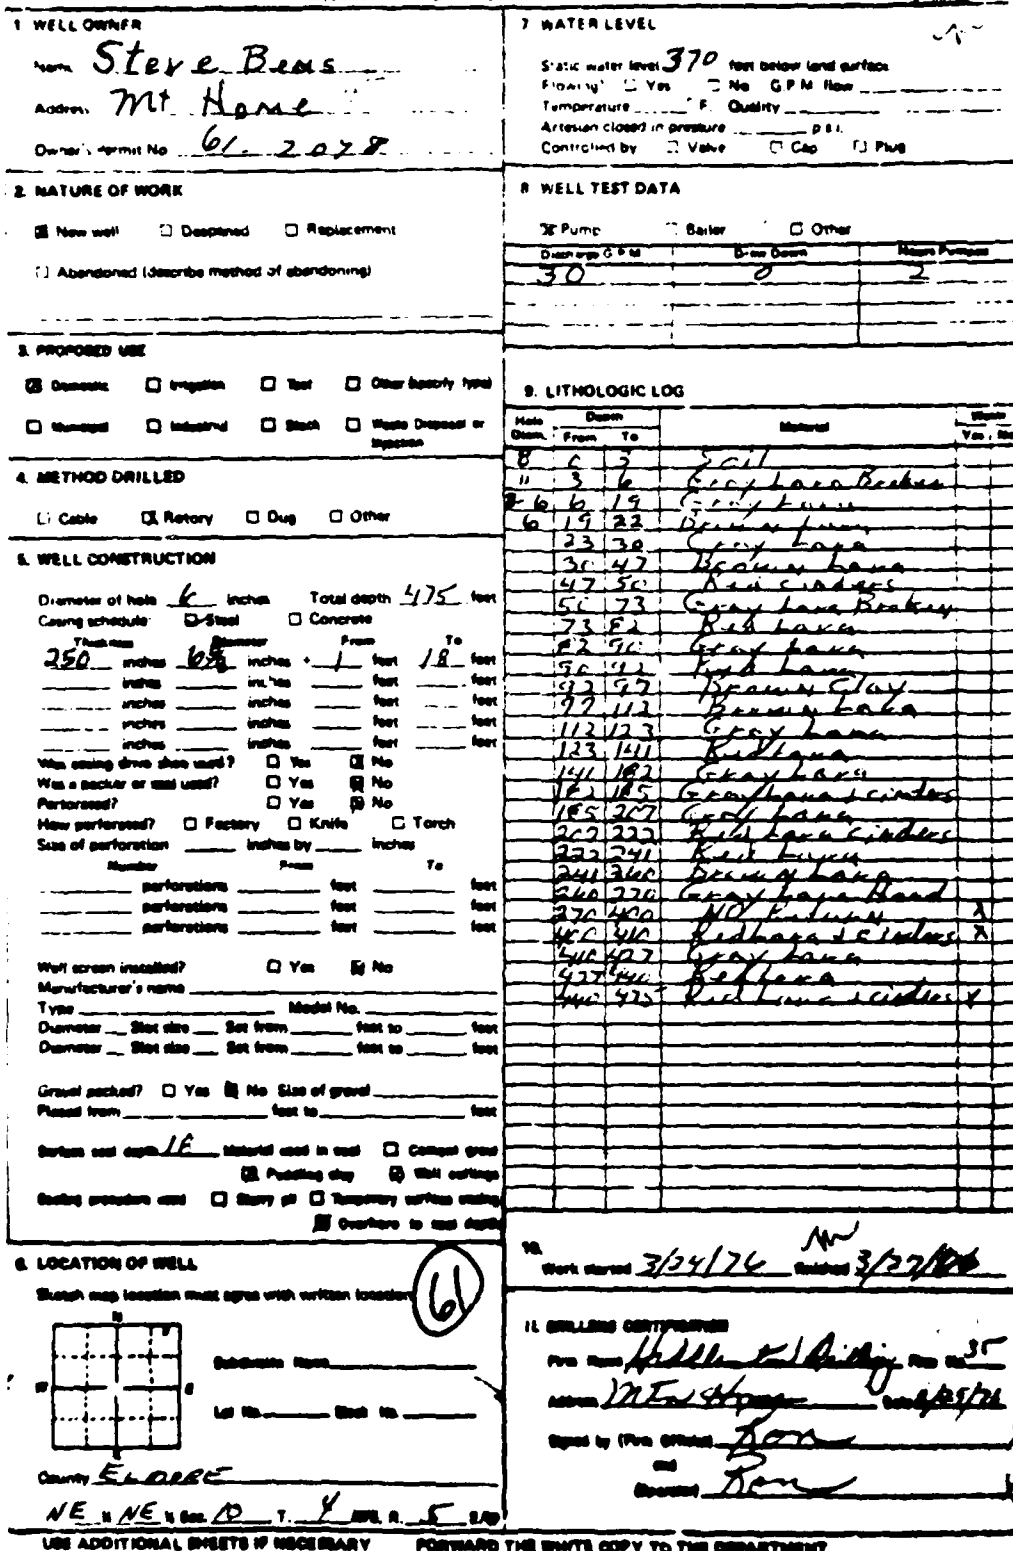 1 WELL OWNER
Name Steve Bens
Address Mt Home
Owner's Permit No 61-2078
2. NATURE OF WORK
New well Deepened Replacement
Abandoned (describe method of abandoning)
3. PROPOSED USE
Domestic Irrigation Test Other (specify type)
Municipal Industrial Stock Waste Disposal or Injection
4. METHOD DRILLED
Cable Rotary Dug Other
5. WELL CONSTRUCTION
Diameter of hole 6 inches Total depth 475 feet
Casing schedule: Steel Concrete
Thickness Diameter From To
250 inches 6 5/8 inches + 1 feet 18 feet
inches inches feet feet
inches inches feet feet
inches inches feet feet
inches inches feet feet
Was casing drive shoe used? Yes No
Was a packer or seal used? Yes No
Perforated? Yes No
How perforated? Factory Knife Torch
Size of perforation inches by inches
Number From To
perforations feet feet
perforations feet feet
perforations feet feet
Well screen installed? Yes No
Manufacturer's name
Type Model No.
Diameter Slot size Set from feet to feet
Diameter Slot size Set from feet to feet
Gravel packed? Yes No Size of gravel
Placed from feet to feet
Surface seal depth 18 Material used in seal Cement grout
Puddling clay Well cuttings
Sealing procedure used Slurry pit Temporary surface casing
Overbore to seal depth
6. LOCATION OF WELL
Sketch map location must agree with written location
61
N
W E
S
Subdivision Name
Lot No. Block No.
County ELMORE
NE ¼ NE ¼ Sec. 10 T. 4 R. 5
7 WATER LEVEL
Static water level 370 feet below land surface
Flowing? Yes No G.P.M. flow
Temperature F. Quality
Artesian closed in pressure p.s.i.
Controlled by Valve Cap Plug
8 WELL TEST DATA
Pump Bailer Other
Discharge G.P.M. Draw Down Hours Pumped
30 0 2
9. LITHOLOGIC LOG
Hole Diam. Depth Material Water
From To Yes No
8 0 3 Soil
" 3 6 Gray Lava Broken
8 6 6 19 Gray Lava
6 19 22 Brown Lava
23 30 Gray Lava
30 47 Brown Lava
47 50 Red Cinders
50 73 Gray Lava Broken
73 82 Red Lava
82 90 Gray Lava
90 92 Red Lava
92 97 Brown Clay
97 112 Brown Lava
112 123 Gray Lava
123 141 Red Lava
141 182 Gray Lava
182 185 Gray Lava & cinders
185 207 Gray Lava
207 222 Red Lava cinders
222 241 Red Lava
241 260 Brown Lava
260 270 Gray Lava Hard
270 400 NO Return X
400 410 Red Lava & Cinders X
410 427 Gray Lava
427 440 Red Lava
440 475 Red Lava & cinders X
10.
Work started 3/24/76 finished 3/27/76
11. DRILLERS CERTIFICATION
Firm Name Drilling Firm No. 35
Address Mtn Home Date
Signed by (Firm Official) Ron
and
(Operator) Ron
USE ADDITIONAL SHEETS IF NECESSARY FORWARD THE WHITE COPY TO THE DEPARTMENT